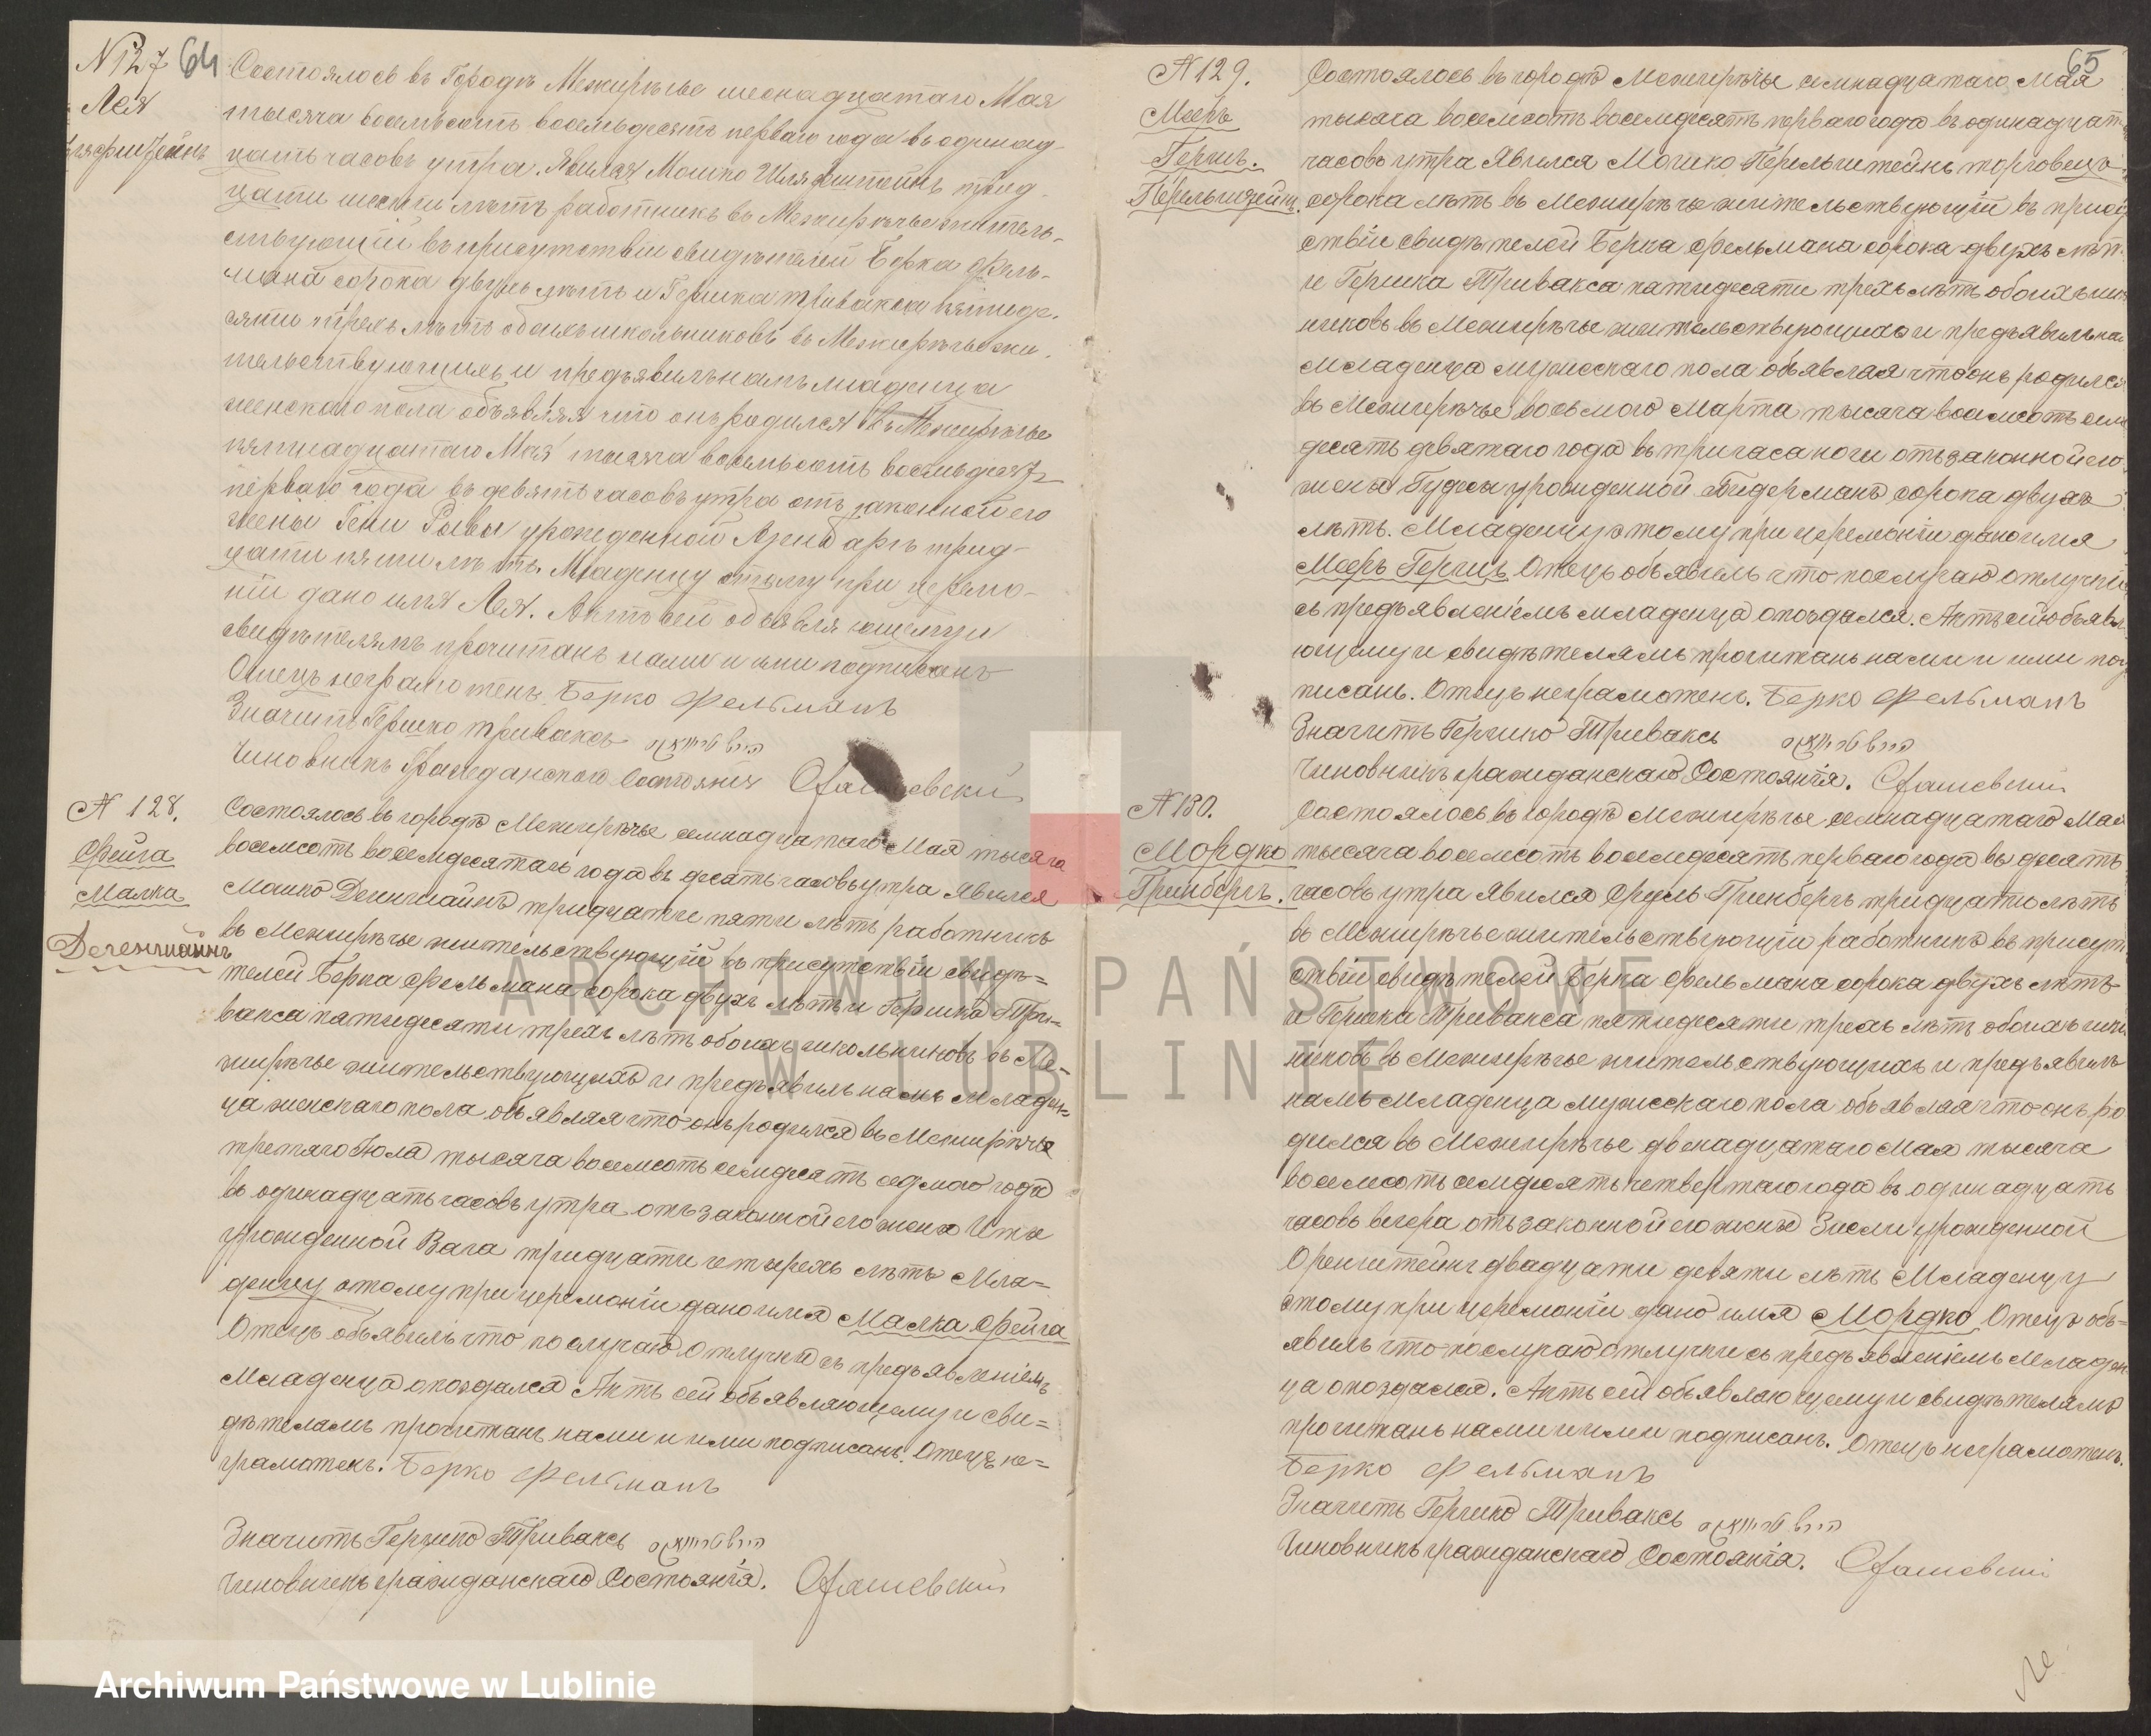 64
N 127
Лея
Шляфштейнъ
Состоялось въ Городѣ Межирѣчье шеснадцатаго Мая
тысяча восемьсотъ восемьдесятъ перваго года въ одинад-
цать часовъ утра. Явился Мошко Шляфштейнъ трид-
цати шести лѣтъ работникъ въ Межирѣчье житель-
ствующій въ присутствіи свидѣтелей Берка Фель-
мана сорока двухъ лѣтъ и Гершка Тривакса пятиде-
сяти трехъ лѣтъ обоихъ школьниковъ въ Межирѣчье жи-
тельствующихъ и предъявилъ намъ младенца
женскаго пола объявляя что онъ родился въ Межирѣчье
пятнадцатаго Мая тысяча восемьсотъ восемьдесятъ
перваго года въ девять часовъ утра отъ законной его
жены Гени Рывы урожденной трид-
цати пяти лѣтъ. Младенцу этому при церемо-
ніи дано имя Лея. Актъ сей объявляющему и
свидѣтелямъ прочитанъ нами и ими подписанъ
Отецъ неграмотенъ. Берко Фельманъ
Значитъ Гершко Триваксъ
Чиновникъ Гражданскаго Состоянія
N 128.
Фейга
Малка
Состоялось въ городѣ Межирѣчье семнадцатаго Мая тысяча
восемсотъ восемдесятаго года въ десять часовъ утра явился
Мошко тридцати пяти лѣтъ работникъ
въ Межирѣчье жительствующій въ присутствіи свидѣ=
телей Берка Фельмана сорока двухъ лѣтъ и Гершка Три=
вакса пятидесяти трехъ лѣтъ обоихъ школьниковъ въ Ме=
жирѣчье жительствующихъ и предъявилъ намъ младен=
ца женскаго пола объявляя что онъ родился въ Межирѣчье
третяго Іюля тысяча восемсотъ семдесятъ седмого года
въ одинадцать часовъ утра отъ законной его жены Иты
урожденной Вага тридцати четырехъ лѣтъ Мла=
денцу этому при церемоніи дано имя Малка Фейга
Отецъ объявилъ что по случаю отлучки съ предъявленіемъ
Младенца опоздался Актъ сей объявляющему и сви=
дѣтелямъ прочитанъ нами и ими подписанъ. Отецъ не=
граматенъ. Берко Фельманъ
Значитъ Гершко Триваксъ
Чиновникъ гражданскаго Состоянія.
65
N 129.
Мееръ
Гершъ.
Перельштейнъ.
Состоялось въ городѣ Межирѣчье семнадцатаго Мая
тысяча восемсотъ восемдесятъ перваго года въ одинадцать
часовъ утра явился Мошко Перельштейнъ торговецъ
сорока лѣтъ въ Межирѣчье жительствующій въ прису
ствіи свидѣтелей Берка Фельмана сорока двухъ лѣтъ
и Гершка Тривакса пятидесяти трехъ лѣтъ обоихъ школь
никовъ въ Межирѣчье жительствующихъ и предъявилъ на
младенца мужескаго пола объявляя что онъ родился
въ Межирѣчье восьмого Марта тысяча восемсотъ сем
десятъ девятаго года въ три часа ночи отъ законной его
жены урожденной сорока двухъ
лѣтъ. Младенцу этому при церемоніи дано имя
Мееръ Гершъ Отецъ объявилъ что по случаю отлучки
съ предъявленіемъ младенца опоздался. Актъ сей объявл
ющему и свидѣтелямъ прочитанъ нами и ими под
писанъ. Отецъ неграмотенъ. Берко Фельманъ
Значитъ Гершко Триваксъ
Чиновникъ гражданскаго Состоянія.
N 130.
Мордко
Гринбергъ.
Состоялось въ городѣ Межирѣчье семнадцатаго Мая
тысяча восемсотъ восемдесятъ перваго года въ десять
часовъ утра явился Сруль Гринбергъ тридцати лѣтъ
въ Межирѣчье жительствующій работникъ въ присут
ствіи свидѣтелей Берка Фельмана сорока двухъ лѣтъ
и Гершка Тривакса пятидесяти трехъ лѣтъ обоихъ школь
никовъ въ Межирѣчье жительствующихъ и предъявилъ
намъ младенца мужескаго пола объявляя что онъ ро
дился въ Межирѣчье двенадцатаго Мая тысяча
восемсотъ семдесятъ четвертаго года въ одинадцать
часовъ вечера отъ законной его жены Зисли урожденной
Оренштейнъ двадцати девяти лѣтъ Младенцу
этому при церемоніи дано имя Мордко Отецъ объ=
явилъ что по случаю отлучки съ предъявленіемъ младен
ца опоздался. Актъ сей объявляющему и свидѣтелямъ
прочитанъ нами и ими подписанъ. Отецъ неграмотенъ.
Берко Фельманъ
Значитъ Гершко Триваксъ
Чиновникъ гражданскаго Состоянія.
ARCHIWUM PAŃSTWOWE
W LUBLINIE
Archiwum Państwowe w Lublinie